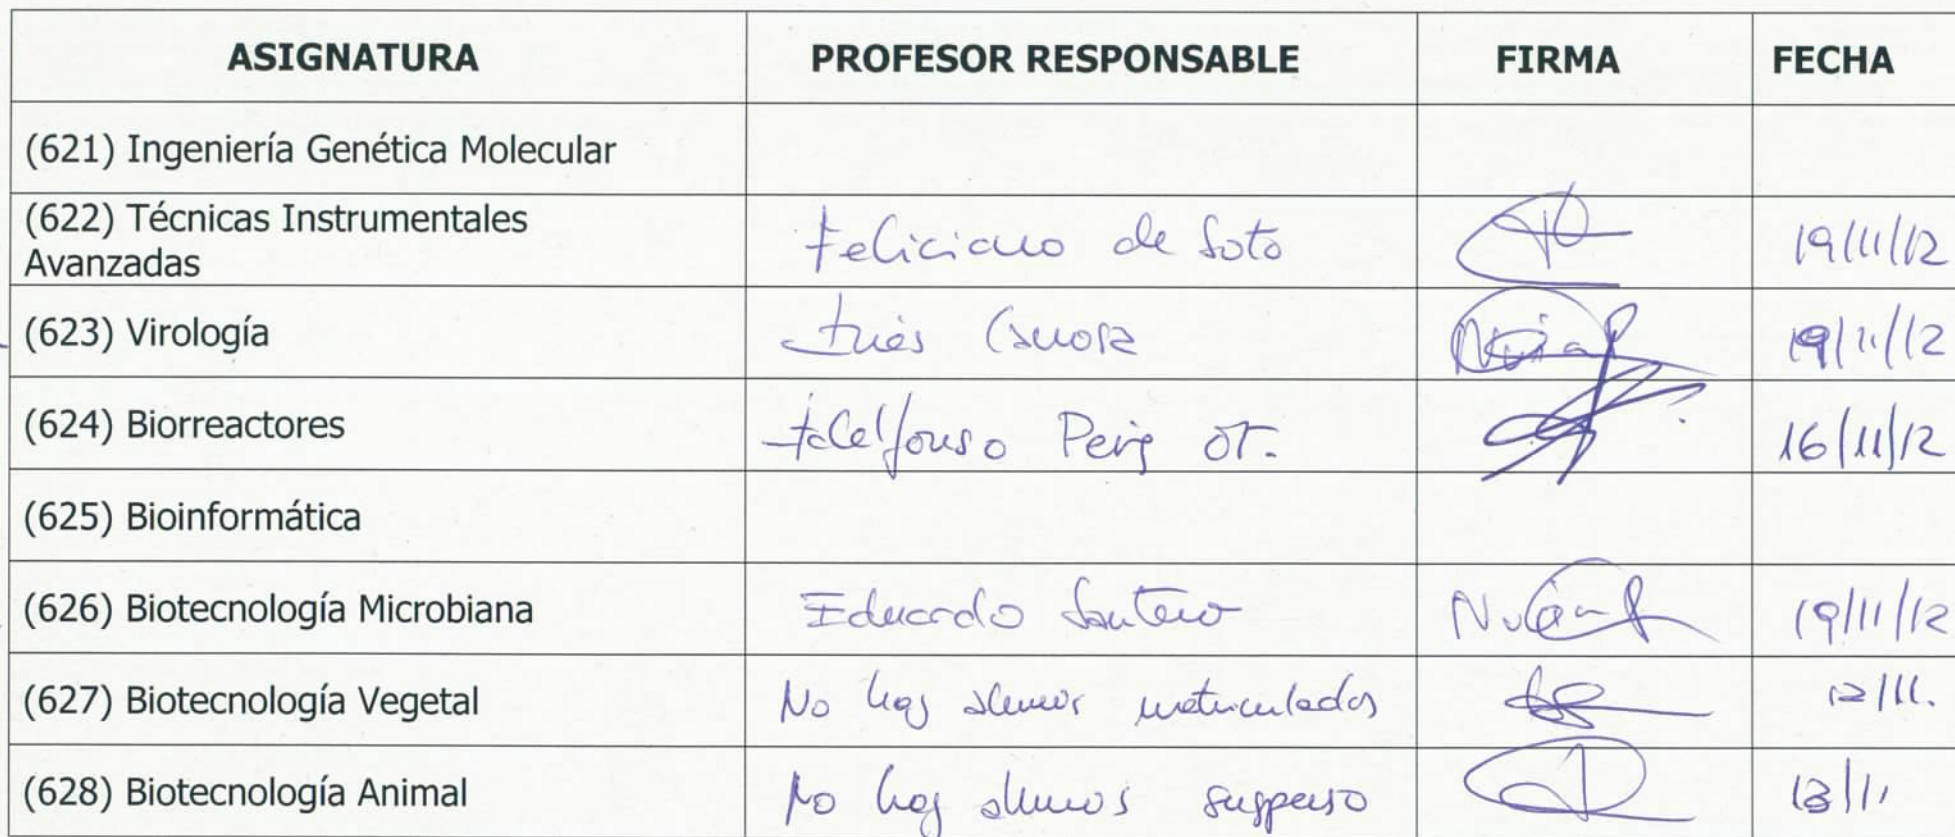 ASIGNATURA PROFESOR RESPONSABLE FIRMA FECHA
(621) Ingeniería Genética Molecular
(622) Técnicas Instrumentales
Avanzadas Feliciano de Soto 19/11/12
(623) Virología Inés Canosa 19/11/12
(624) Biorreactores 16/11/12
(625) Bioinformática
(626) Biotecnología Microbiana Eduardo Santero 19/11/12
(627) Biotecnología Vegetal No hay alumnos matriculados 12/11.
(628) Biotecnología Animal No hay alumnos suspenso 13/11